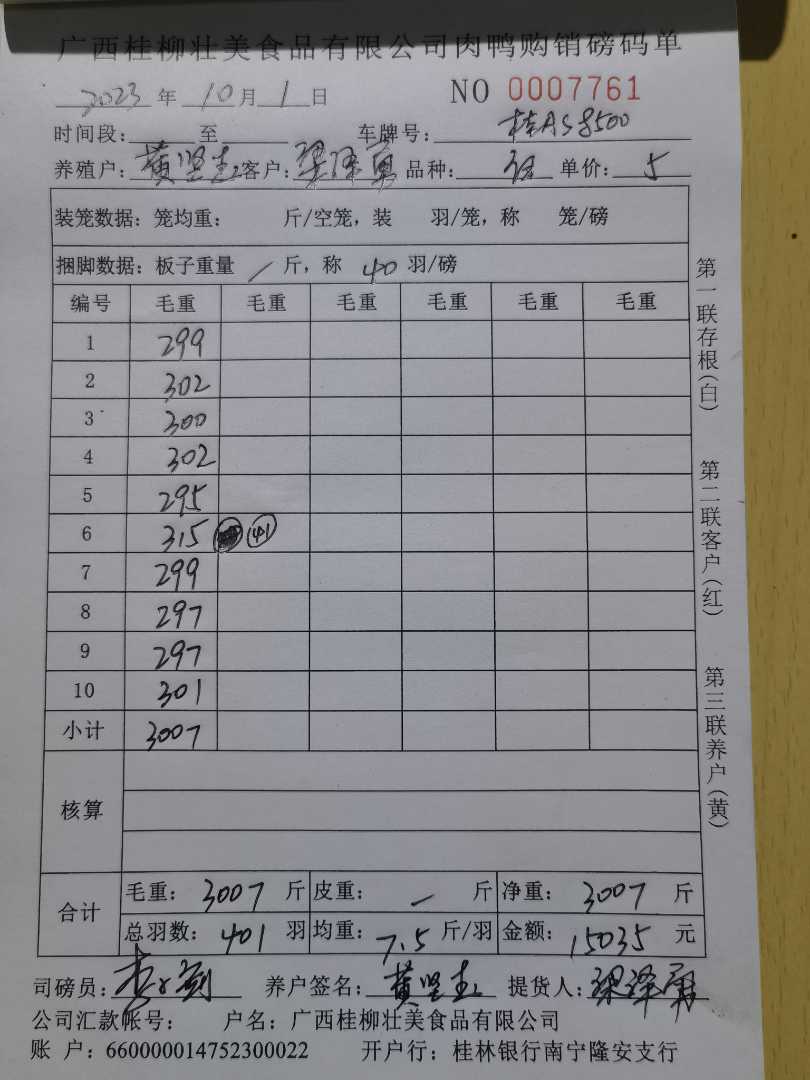 广西桂柳壮美食品有限公司肉鸭购销磅码单
2023 年 10 月 1 日 NO 0007761
时间段: 至 车牌号: 桂AS8500
养殖户: 黄坚 客户: 梁泽勇 品种: 单价: 5
装笼数据: 笼均重: 斤/空笼, 装 羽/笼, 称 笼/磅
捆脚数据: 板子重量 / 斤, 称 40 羽/磅
编号 毛重 毛重 毛重 毛重 毛重 毛重
1 299
2 302
3 300
4 302
5 295
6 315 41
7 299
8 297
9 297
10 301
小计 3007
核算
合计 毛重: 3007 斤 皮重: - 斤 净重: 3007 斤
总羽数: 401 羽 均重: 7.5 斤/羽 金额: 15035 元
司磅员: 养户签名: 黄坚 提货人: 梁泽勇
公司汇款帐号: 户名: 广西桂柳壮美食品有限公司
账 户: 660000014752300022 开户行: 桂林银行南宁隆安支行
第一联存根(白) 第二联客户(红) 第三联养户(黄)